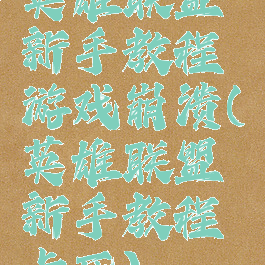 英雄联盟
新手教程
游戏崩溃(
英雄联盟
新手教程